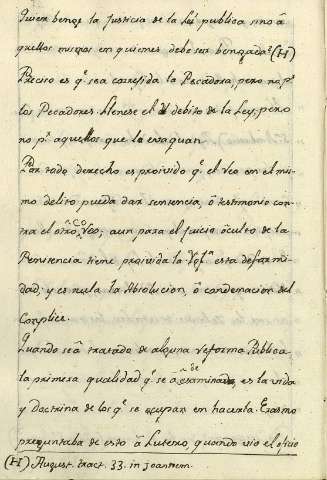 Quien benga la Justicia de la Ley publica sino â
quellos mismos en quienes debe ser bengada? (H)
Preciso es q.e sea corregida la Pecadora, pero no p.r
los Pecadores. Llenese el debito de la Ley, pero
no p.r aquellos que la evaquan.
Por todo derecho es proivido q.e el reo en el mis-
mo delito, pueda dar sentencia, ô testimonio con-
tra el otro Co reo; aun para el juicio ôculto de la
Penitencia tiene proivida la Ygl.a esta defor-
midad; y es nula la Absolucion, ô condenacion del
Conplice.
Quando se â tratado de alguna reforma Publica
la primera qualidad q.e se â de examinado, es la vida
y Doctrina de los q.e se ocupan en hacerla. Erasmo
preguntaba de esto â Lutero, quando vio el oficio
(H) August. tract. 33. in Joannem.